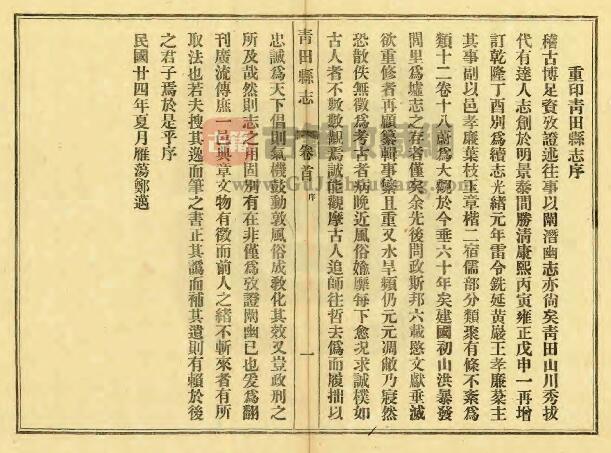 重印青田縣志序
稽古博足資攷證述往事以闡潛幽志亦尙矣青田山川秀拔
代有達人志創於明景泰間勝清康熙丙寅雍正戊申一再增
訂乾隆丁酉別為續志光緒元年雷令銑延黃巖王孝廉棻主
其事副以邑孝廉葉枝玉章楷二宿儒部分類聚有條不紊為
類十二卷十八蔚為大觀於今垂六十年矣建國初山洪暴發
閭里為墟志之存者僅矣余先後問政斯邦六載愍文獻垂滅
欲重修者再顧纂輯事緐且重又水旱頻仍元元凋敝乃寢然
恐散佚無徵為考古者病晚近風俗媮靡每下愈况求誠樸如
古人者不數數覯焉誠能觀摩古人追師往哲夫偽而履拙以
青田縣志
卷首
序
一
忠誠為天下倡則氣機鼓動敦風俗成敎化其效又豈政刑之
所及哉然則志之用固別有在非僅為攷證闡幽已也爰為翻
刊廣流傳庶一邑典章文物有徵而前人之緒不斬來者有所
取法也若夫搜其逸而筆之書正其譌而補其遺則有賴於後
之君子焉於是乎序
民國廿四年夏月雁蕩鄭邁